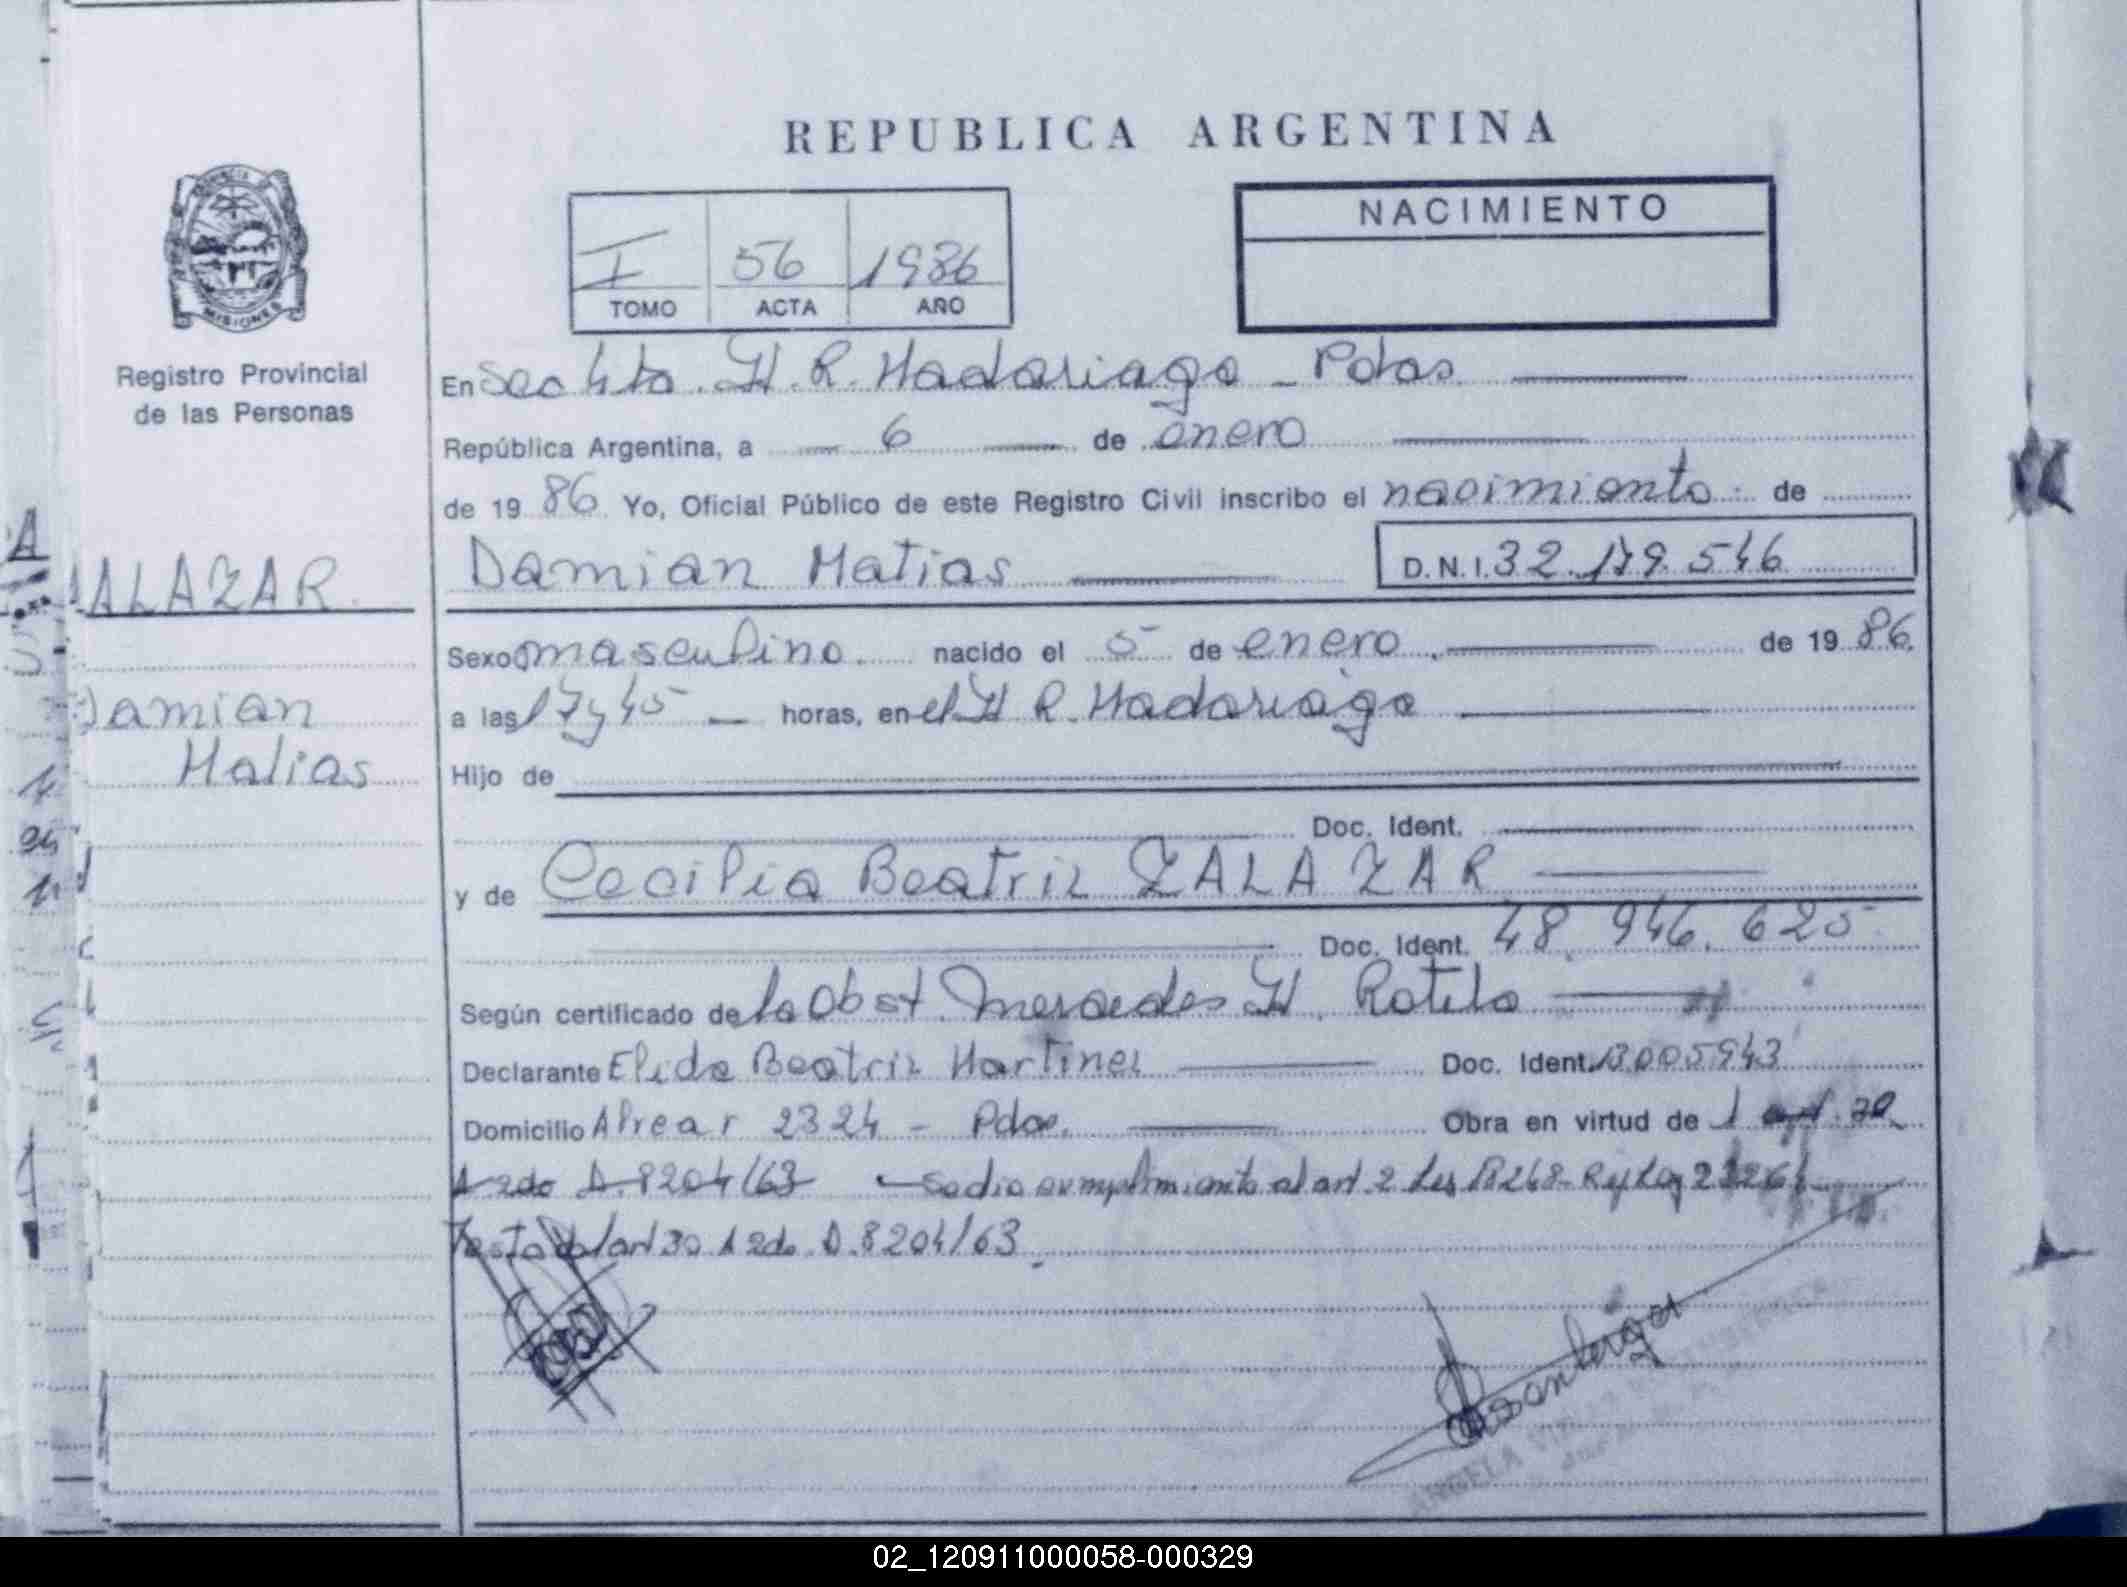 REPUBLICA ARGENTINA
PROVINCIA
MISIONES
Registro Provincial
de las Personas
I 56 1986
TOMO ACTA AÑO
NACIMIENTO
En Sec 4ta. H. R. Madariaga - Pdas
República Argentina, a 6 de enero
de 19 86 Yo, Oficial Público de este Registro Civil inscribo el nacimiento de
Damian Matias D.N.I. 32.179.546
ALAZAR
Sexo masculino nacido el 5 de enero de 19 86
Damian
Matias
a las 17 y 45 horas, en el H R. Madariaga
Hijo de
Doc. Ident.
y de Cecilia Beatriz ZALAZAR
Doc. Ident. 18.946.625
Según certificado de la Obst. Mercedes H. Rotela
Declarante Elida Beatriz Martinez Doc. Ident. 13005943
Domicilio Alvear 2324 - Pdas. Obra en virtud de l art. 30
A 2do D. 8204/63 - Se dio cumplimiento al art. 2 Ley 18248 - Ley 23264
Testado/art 30 A 2do. D. 8204/63
ANGELA
02_120911000058-000329